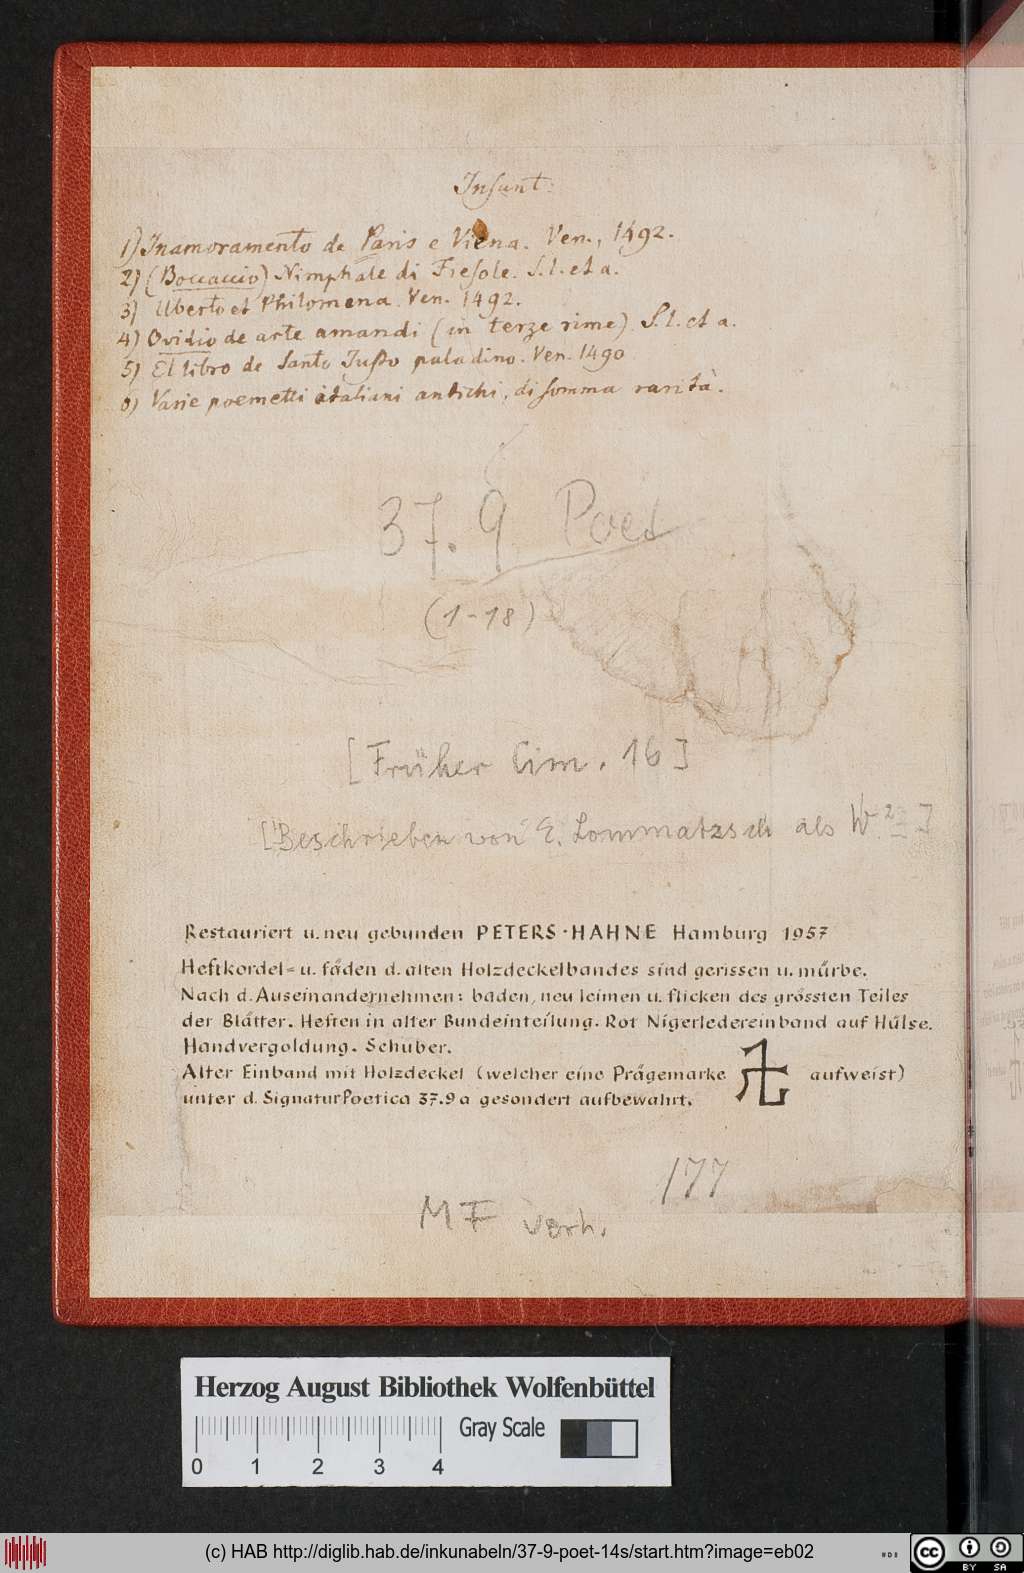 Insunt:
1) Inamoramento de Paris e Viena. Ven., 1492.
2) (Boccaccio) Nimphale di Fiesole. S. l. et a.
3) Uberto et Philomena. Ven. 1492.
4) Ovidio de arte amandi (in terze rime). S. l. et a.
5) El libro de Santo Justo paladino. Ven. 1490
6) Varie poemetti italiani antichi, di somma rarità.
37. 9 Poet
(1-18)
[Früher Cim. 16]
[Beschrieben von E. Lommatzsch als W.²]
Restauriert u. neu gebunden PETERS·HAHNE Hamburg 1957
Heftkordel= u. fäden d. alten Holzdeckelbandes sind gerissen u. mürbe.
Nach d. Auseinandernehmen: baden, neu leimen u. flicken des grössten Teiles
der Blätter. Heften in alter Bundeinteilung. Rot Nigerledereinband auf Hülse.
Handvergoldung. Schuber.
Alter Einband mit Holzdeckel (welcher eine Prägemarke aufweist)
unter d. Signatur Poetica 37.9a gesondert aufbewahrt.
177
MF vorh.
Herzog August Bibliothek Wolfenbüttel
Gray Scale
0 1 2 3 4
(c) HAB http://diglib.hab.de/inkunabeln/37-9-poet-14s/start.htm?image=eb02
cc BY SA